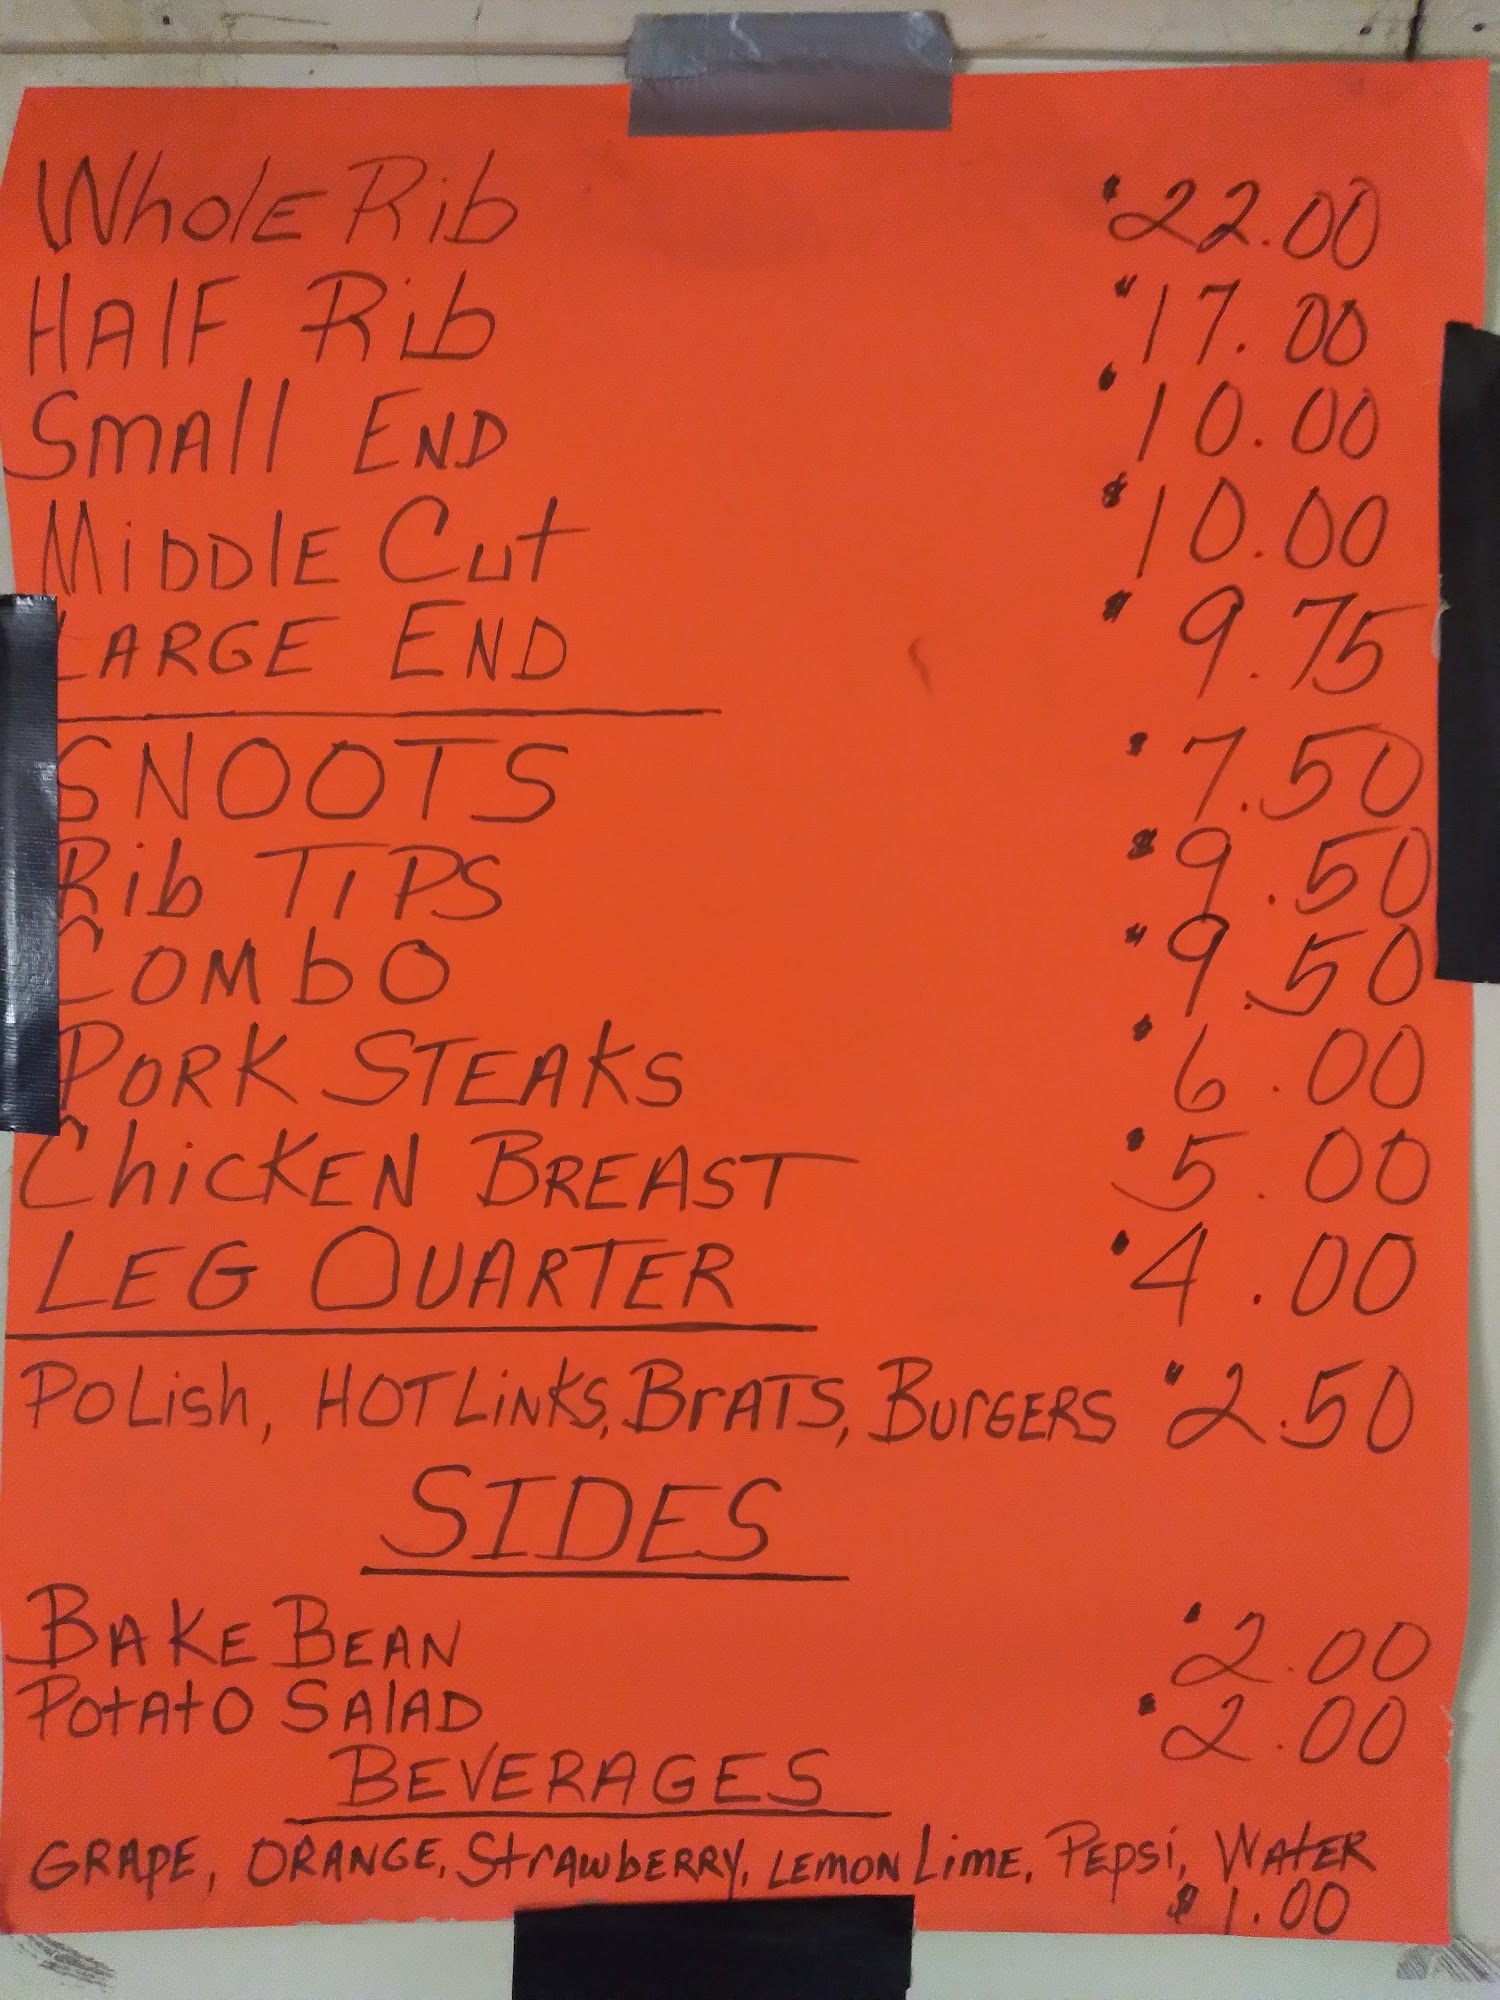 Whole Rib $22.00
Half Rib $17.00
Small End $10.00
Middle Cut $10.00
Large End $9.75
SNOOTS $7.50
Rib Tips $9.50
Combo $9.50
Pork Steaks $6.00
Chicken Breast $5.00
Leg Quarter $4.00
Polish, Hot Links, Brats, Burgers $2.50
SIDES
Bake Bean $2.00
Potato Salad $2.00
BEVERAGES
Grape, Orange, Strawberry, Lemon Lime, Pepsi, Water
$1.00